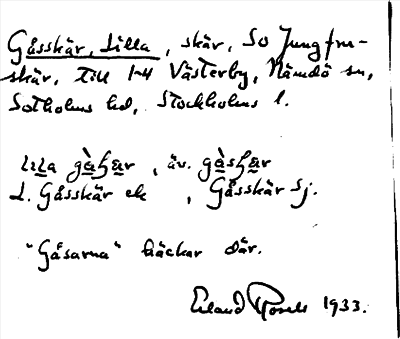 Gåsskär, Lilla, skär, SO Jungfru-
skär, till 1-4 Västerby, Nämdö sn,
Sotholms hd, Stockholms l.
lila gåʃær, äv. gåsʃær
L. Gåsskär ek, Gåsskär Sj.
"Gåsarna" häckar där.
Erland Rosell 1933.